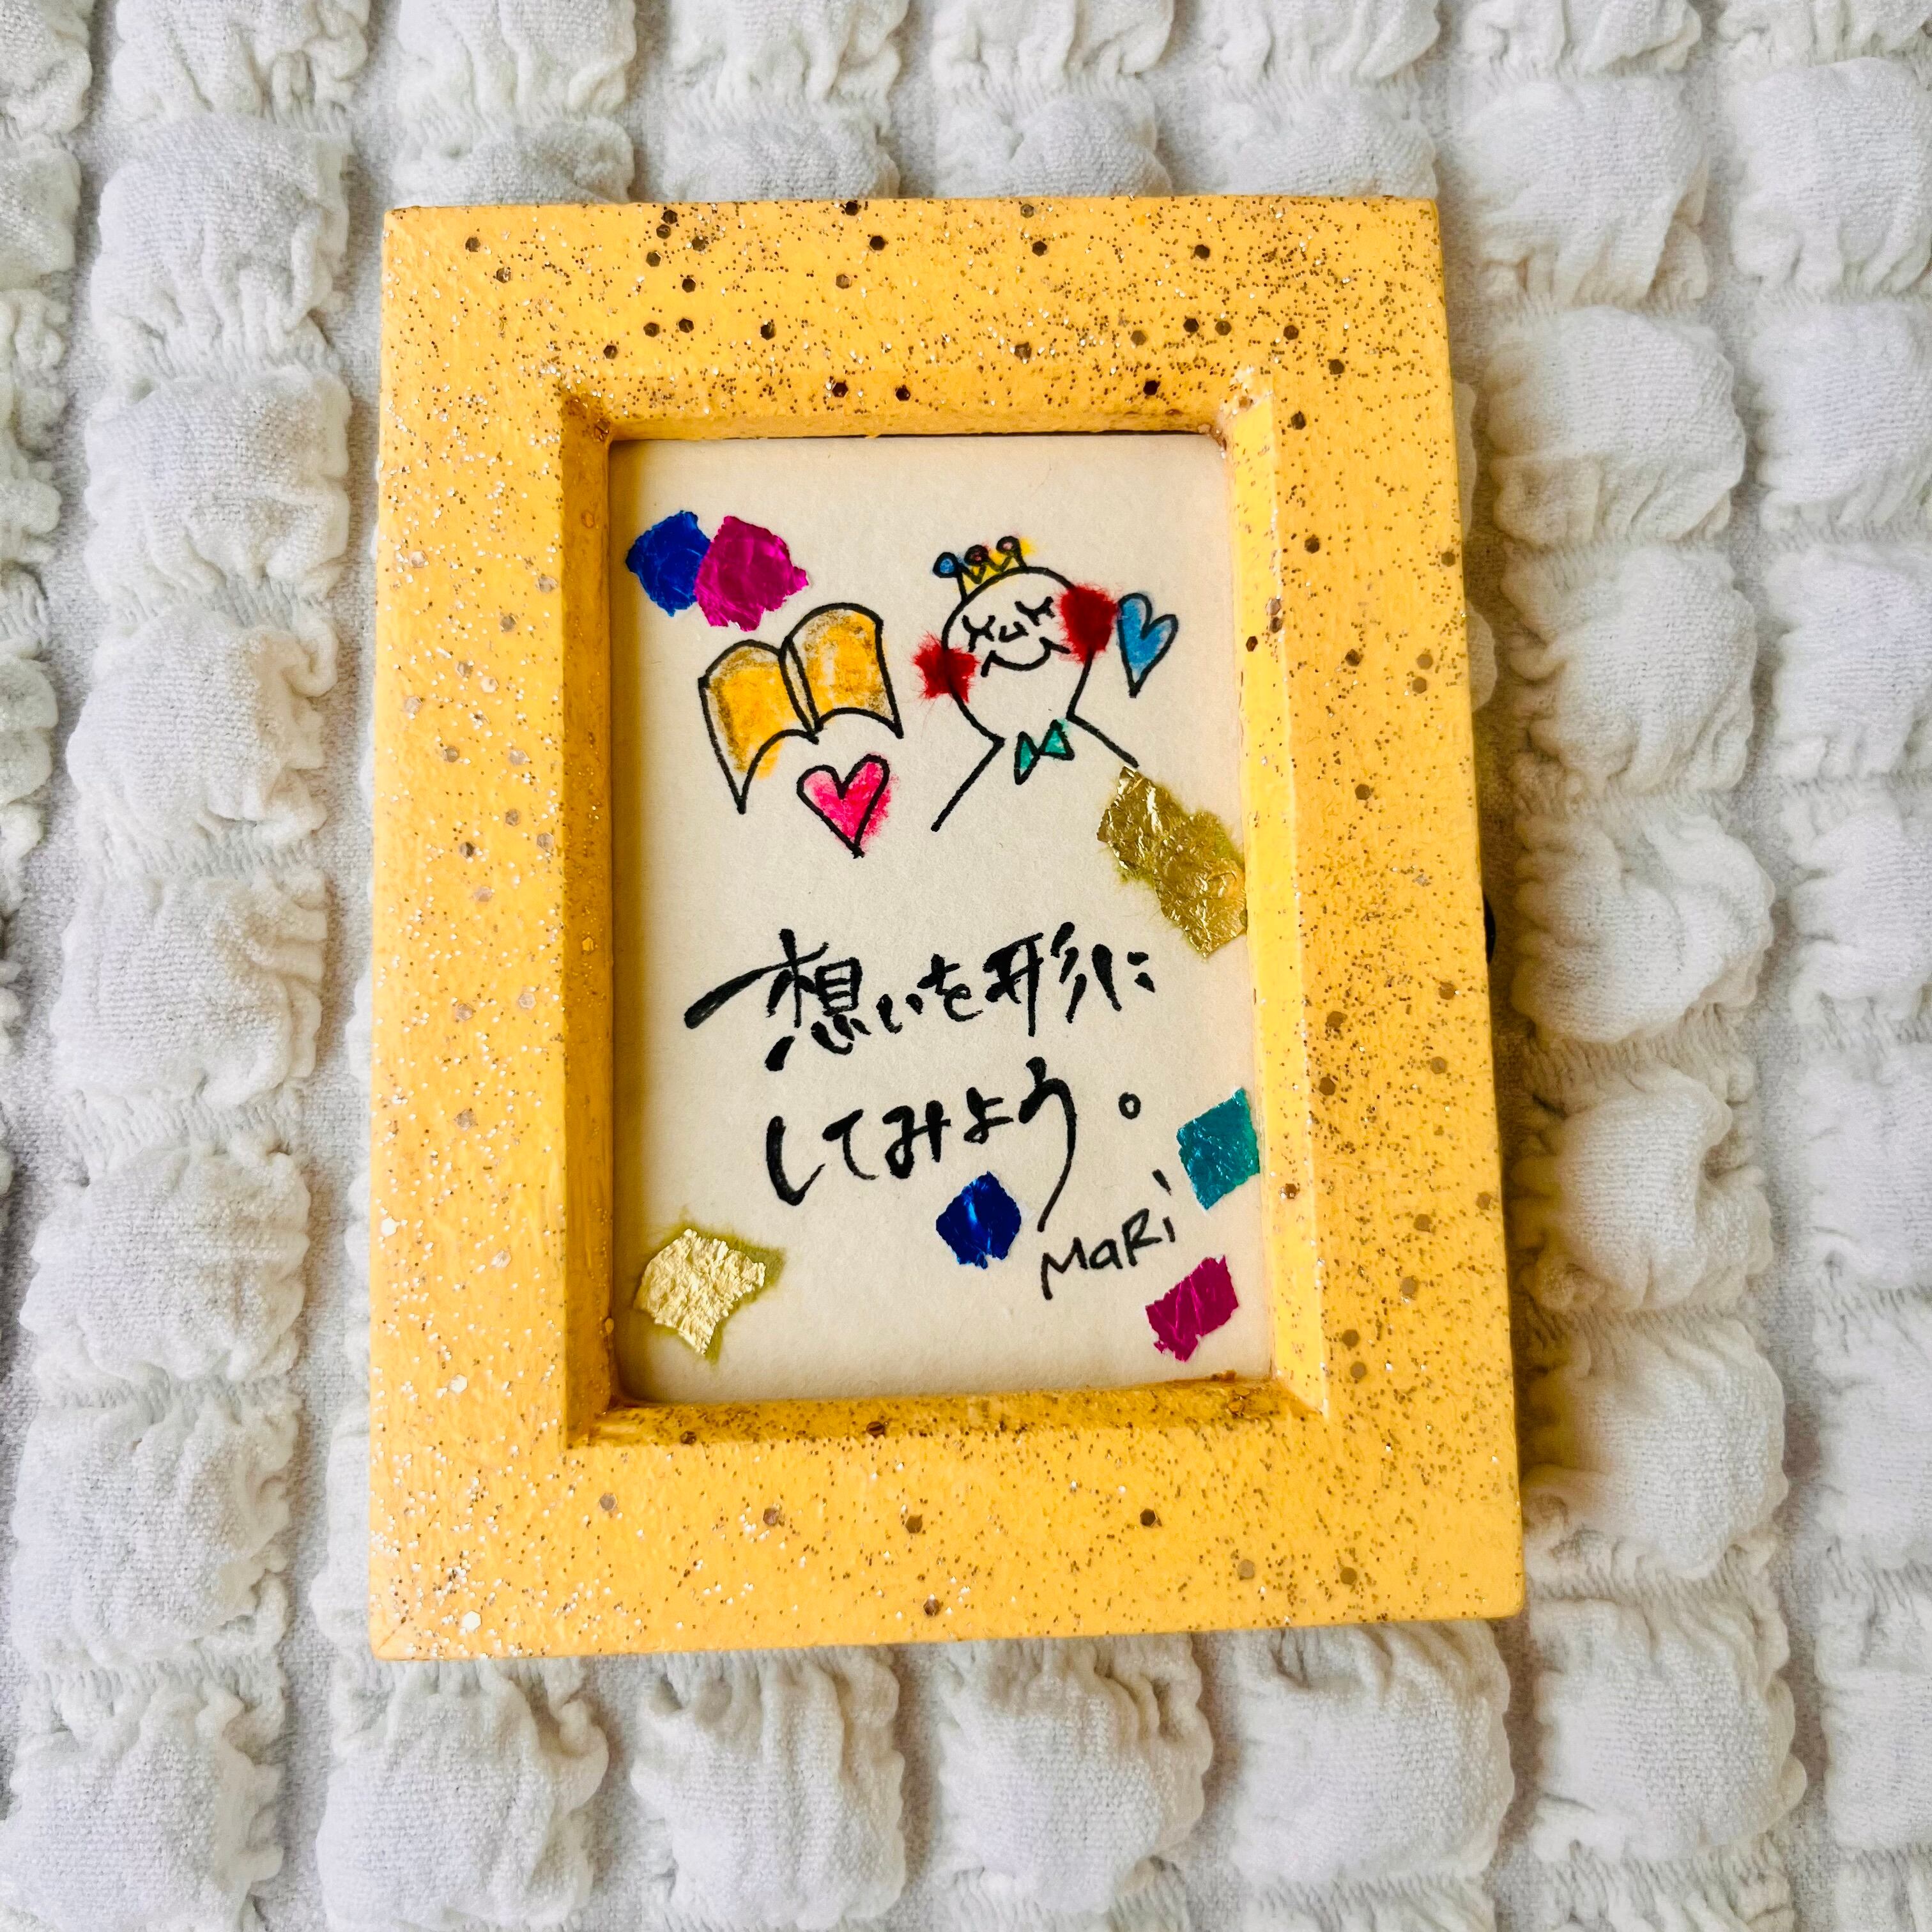 想いを形に
してみよう。
MaRi